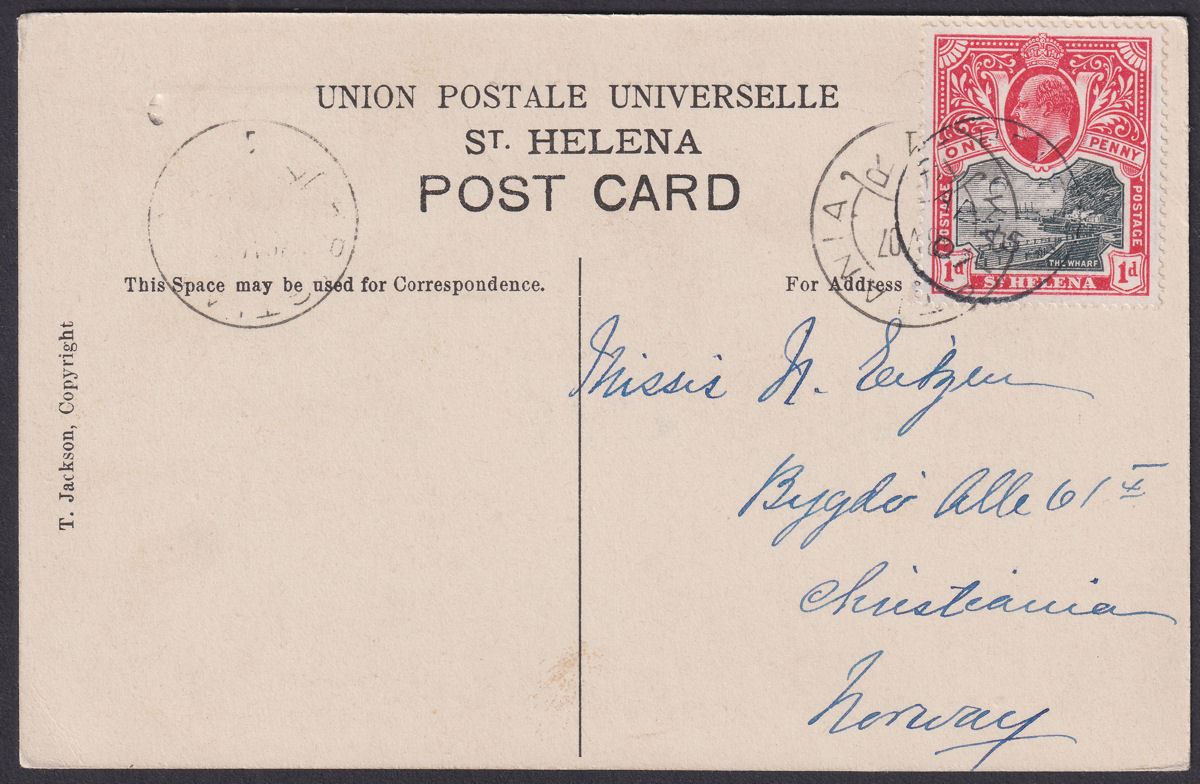 UNION POSTALE UNIVERSELLE
ST. HELENA
POST CARD
ONE PENNY
POSTAGE
POSTAGE
THE WHARF
1d
1d
ST HELENA
This Space may be used for Correspondence.
For Address
T. Jackson, Copyright
Missis N. Eitzen
Bygdö Alle 61 I
Christiania
Norway